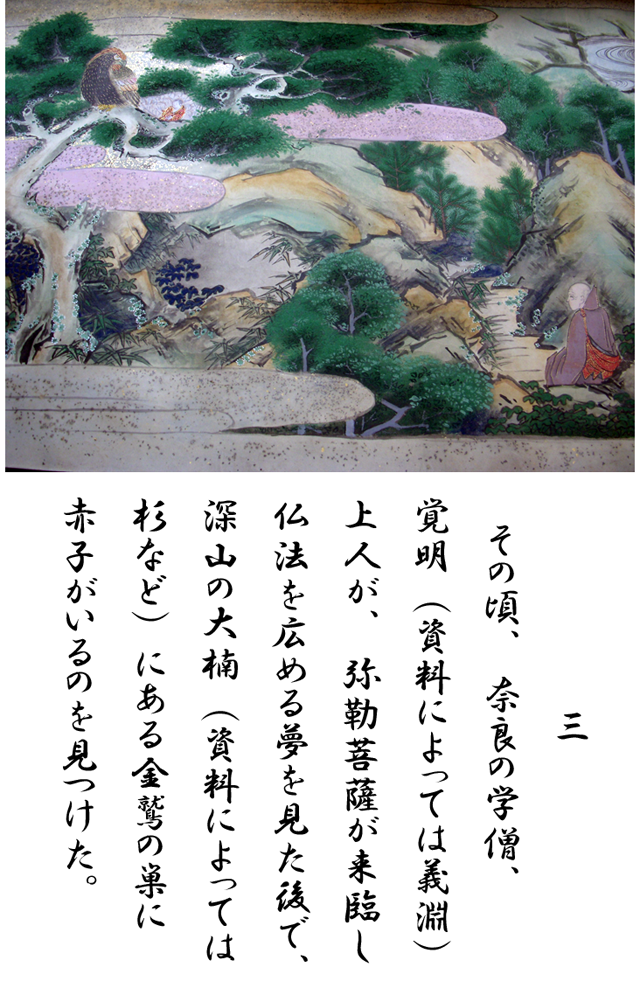 三
その頃、奈良の学僧、
覚明（資料によっては義淵）
上人が、弥勒菩薩が来臨し
仏法を広める夢を見た後で、
深山の大楠（資料によっては
杉など）にある金鷲の巣に
赤子がいるのを見つけた。